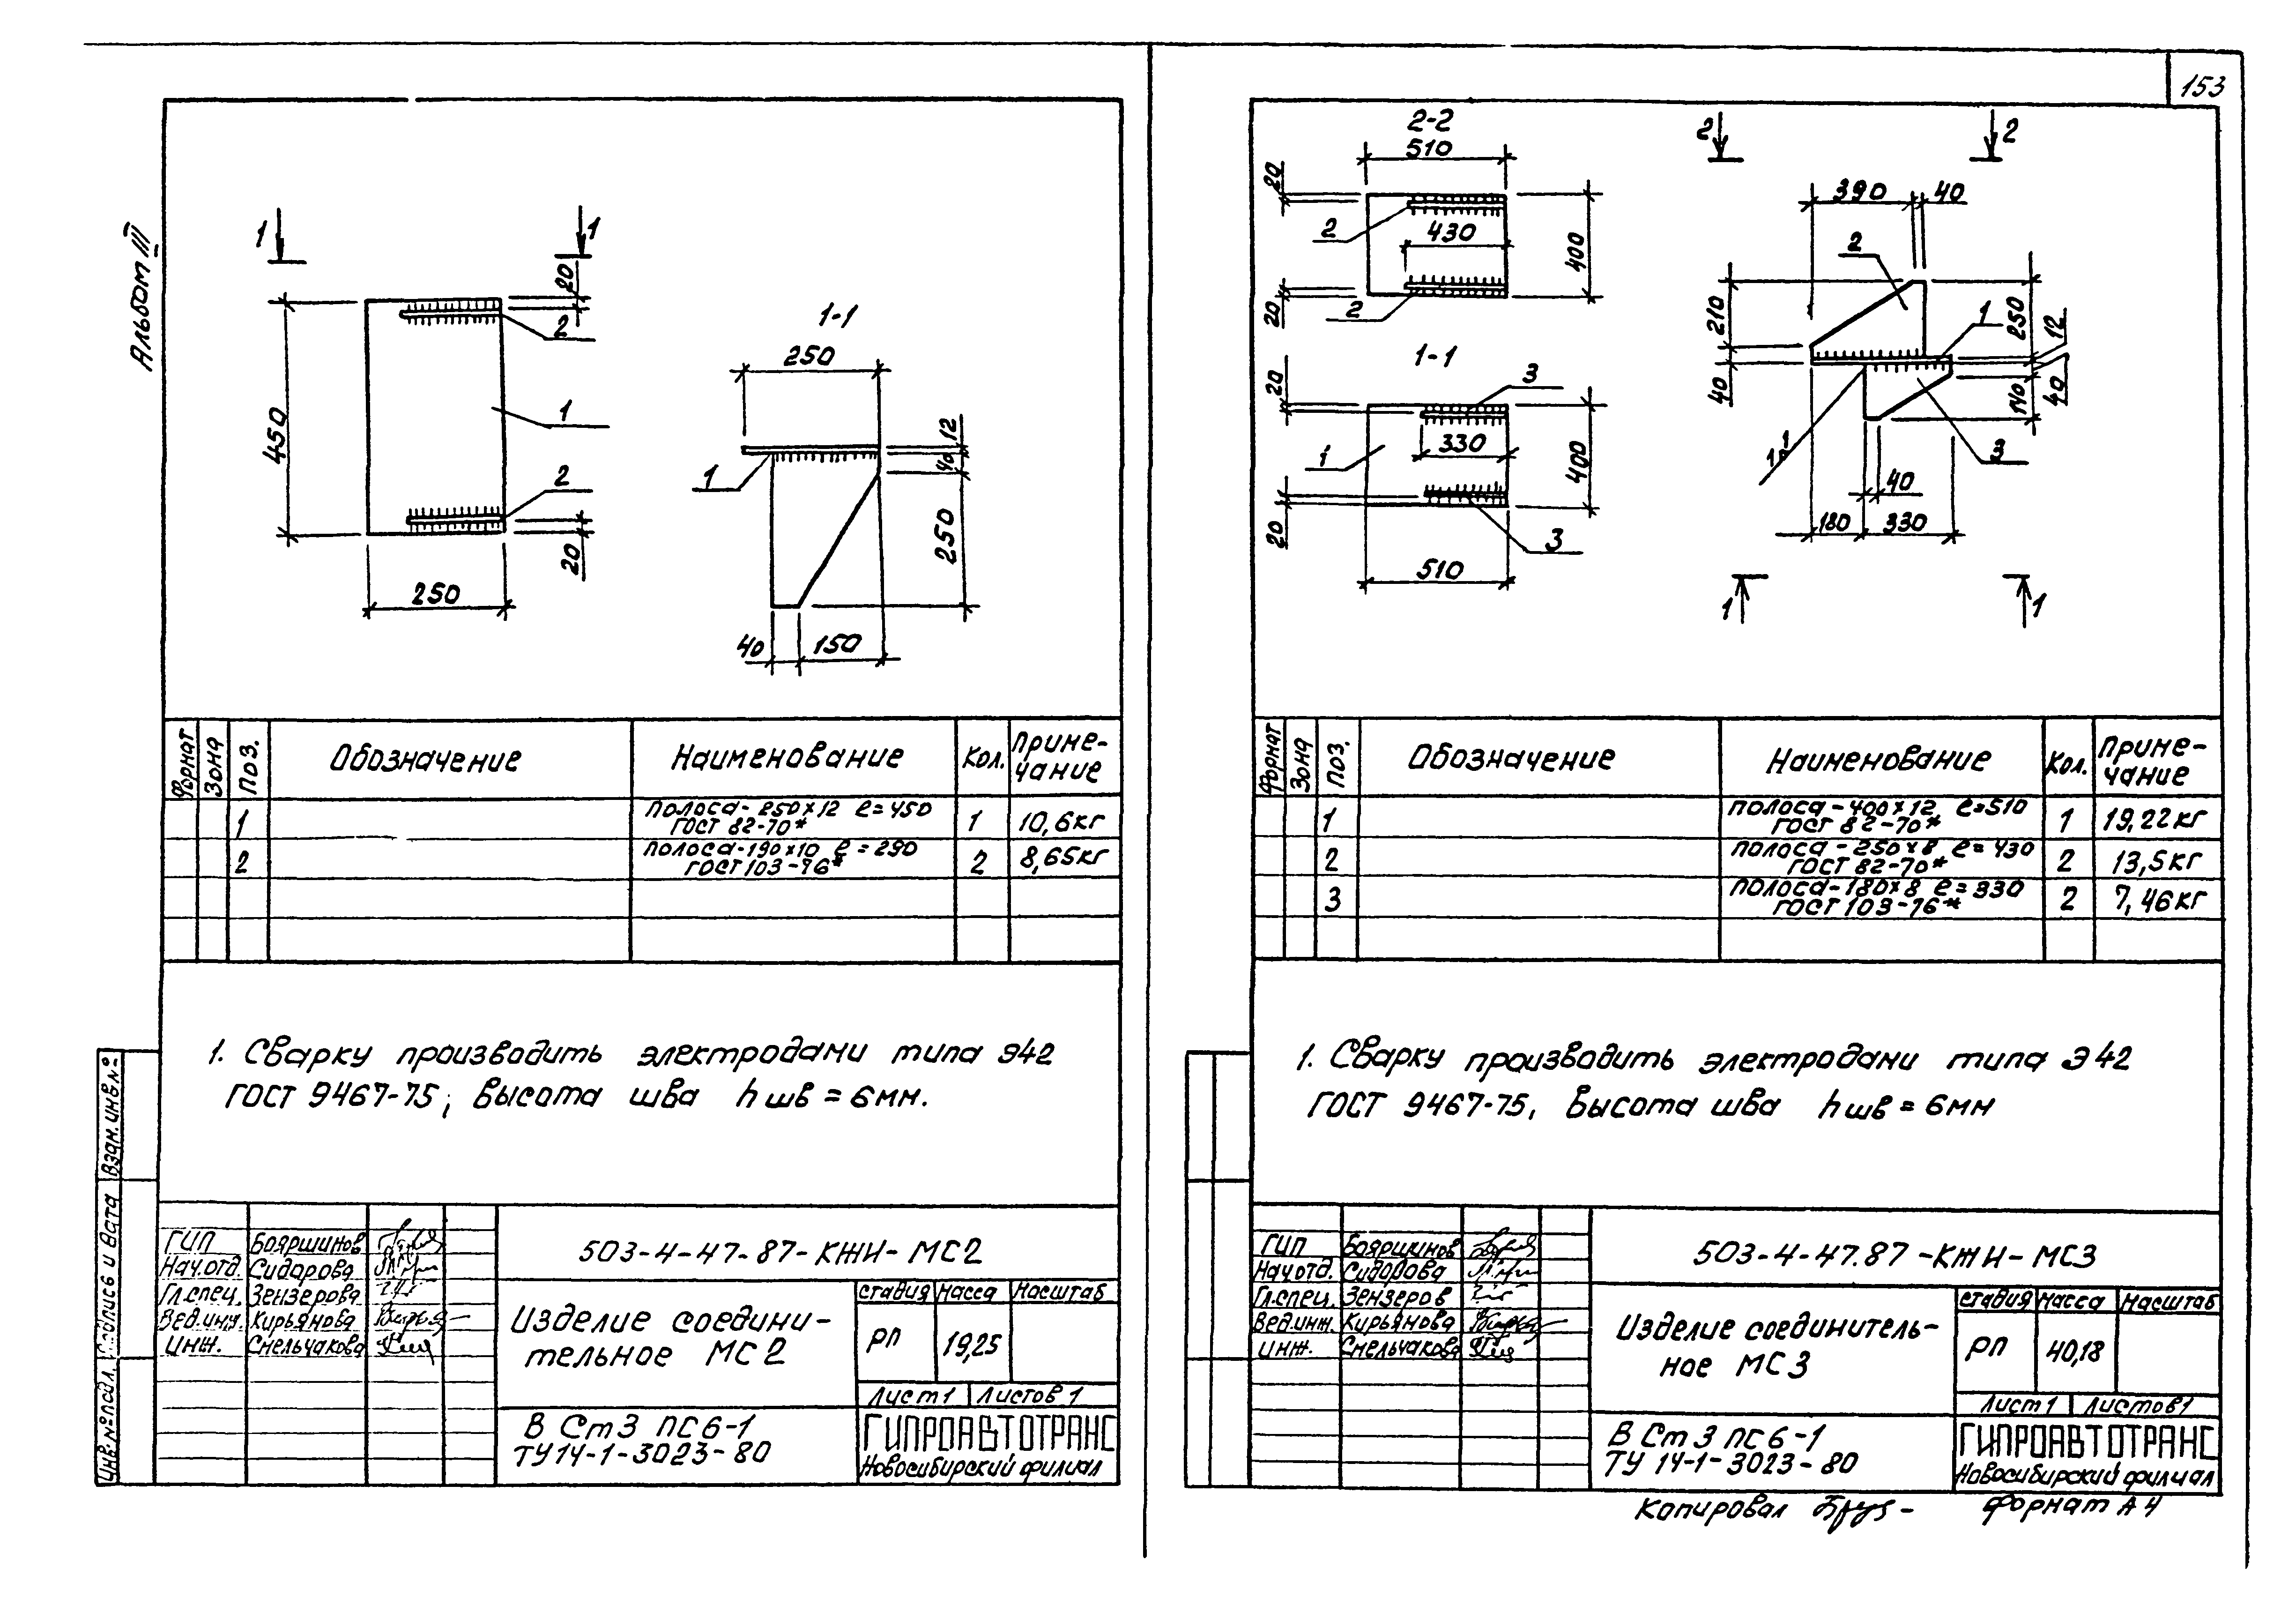 153
Альбом III
1 1
20
2
450
1
2
20
250
1-1
250
12
40
1
250
40 150
Формат Зона Поз. Обозначение Наименование Кол. Приме-
чание
1 Полоса-250×12 ℓ=450
ГОСТ 82-70* 1 10,6кг
2 Полоса-190×10 ℓ=290
ГОСТ 103-76* 2 8,65кг
1. Сварку производить электродами типа Э42
ГОСТ 9467-75; высота шва hшв=6мм.
Взам.инв.№
Подпись и дата
Инв.№подл.
ГИП Бояршинов
Нач.отд. Сидорова
Гл.спец. Зензерова
Вед.инж. Кирьянова
Инж. Смельчакова
503-4-47.87-КЖИ-МС2
Изделие соедини-
тельное МС2
Стадия Масса Масштаб
РП 19,25
Лист 1 Листов 1
В Ст3 ПС6-1
ТУ14-1-3023-80
ГИПРОАВТОТРАНС
Новосибирский филиал
2-2
510
20
2
430
400
20
2
1-1
20
3
1
330
400
20
3
510
2 2
390 40
2
210
1
250
12
40
140
40
3
40
180 330
1 1
Формат Зона Поз. Обозначение Наименование Кол. Приме-
чание
1 Полоса-400×12 ℓ=510
ГОСТ 82-70* 1 19,22кг
2 Полоса-250×8 ℓ=430
ГОСТ 82-70* 2 13,5кг
3 Полоса-180×8 ℓ=330
ГОСТ 103-76* 2 7,46кг
1. Сварку производить электродами типа Э42
ГОСТ 9467-75, высота шва hшв=6мм
ГИП Бояршинов
Нач.отд. Сидорова
Гл.спец. Зензеров
Вед.инж. Кирьянова
Инж. Смельчакова
503-4-47.87-КЖИ-МС3
Изделие соединитель-
ное МС3
Стадия Масса Масштаб
РП 40,18
Лист 1 Листов 1
В Ст 3 ПС 6-1
ТУ 14-1-3023-80
ГИПРОАВТОТРАНС
Новосибирский филиал
Копировал
Формат А4